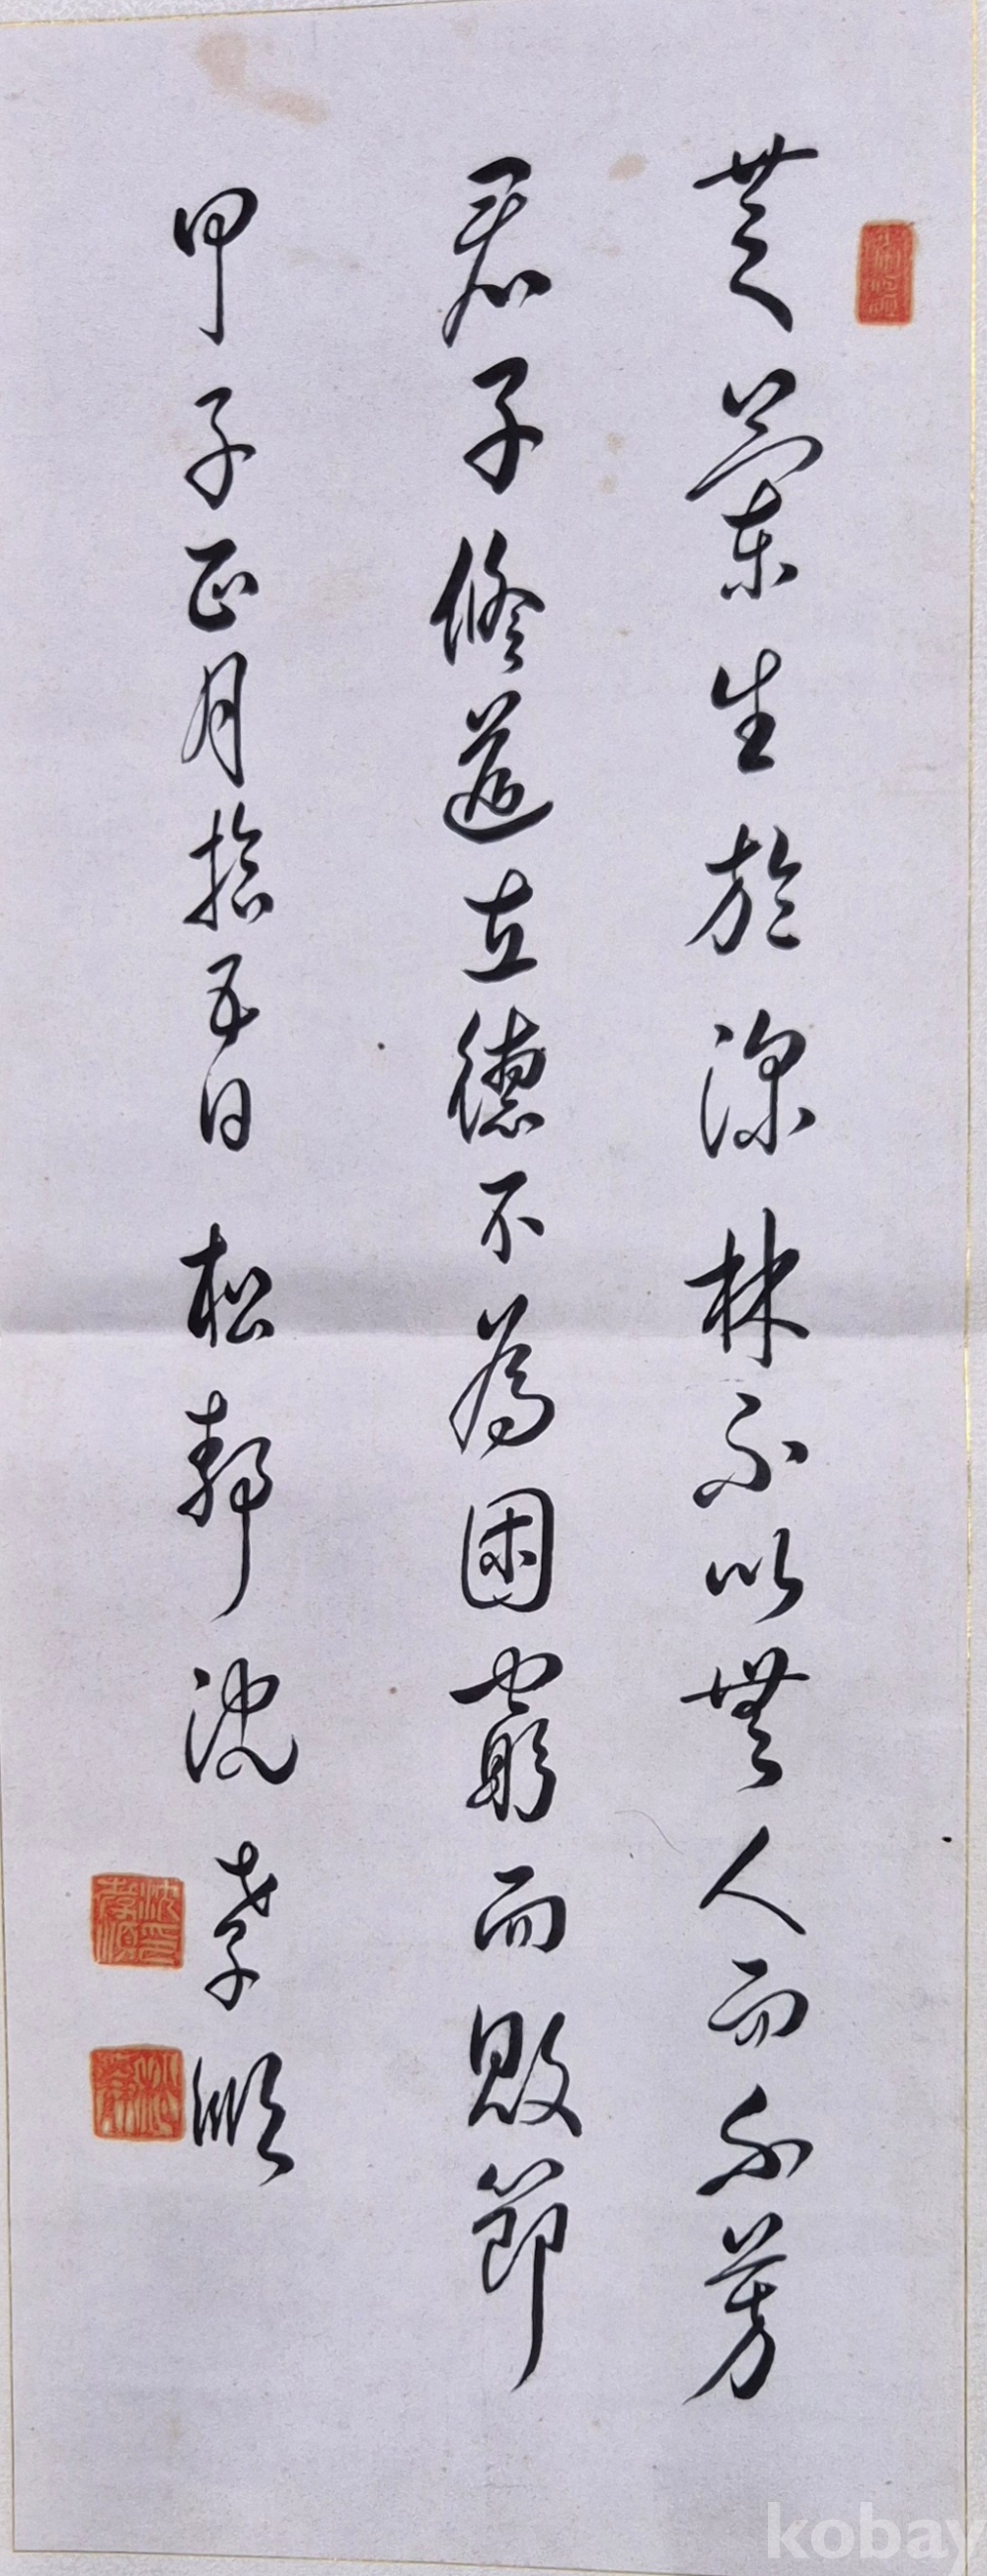 芝蘭生於深林不以無人而不芳
君子修道立德不為困窮而敗節
甲子正月拾五日 松靜 沈孝順
沈孝順印
kobay